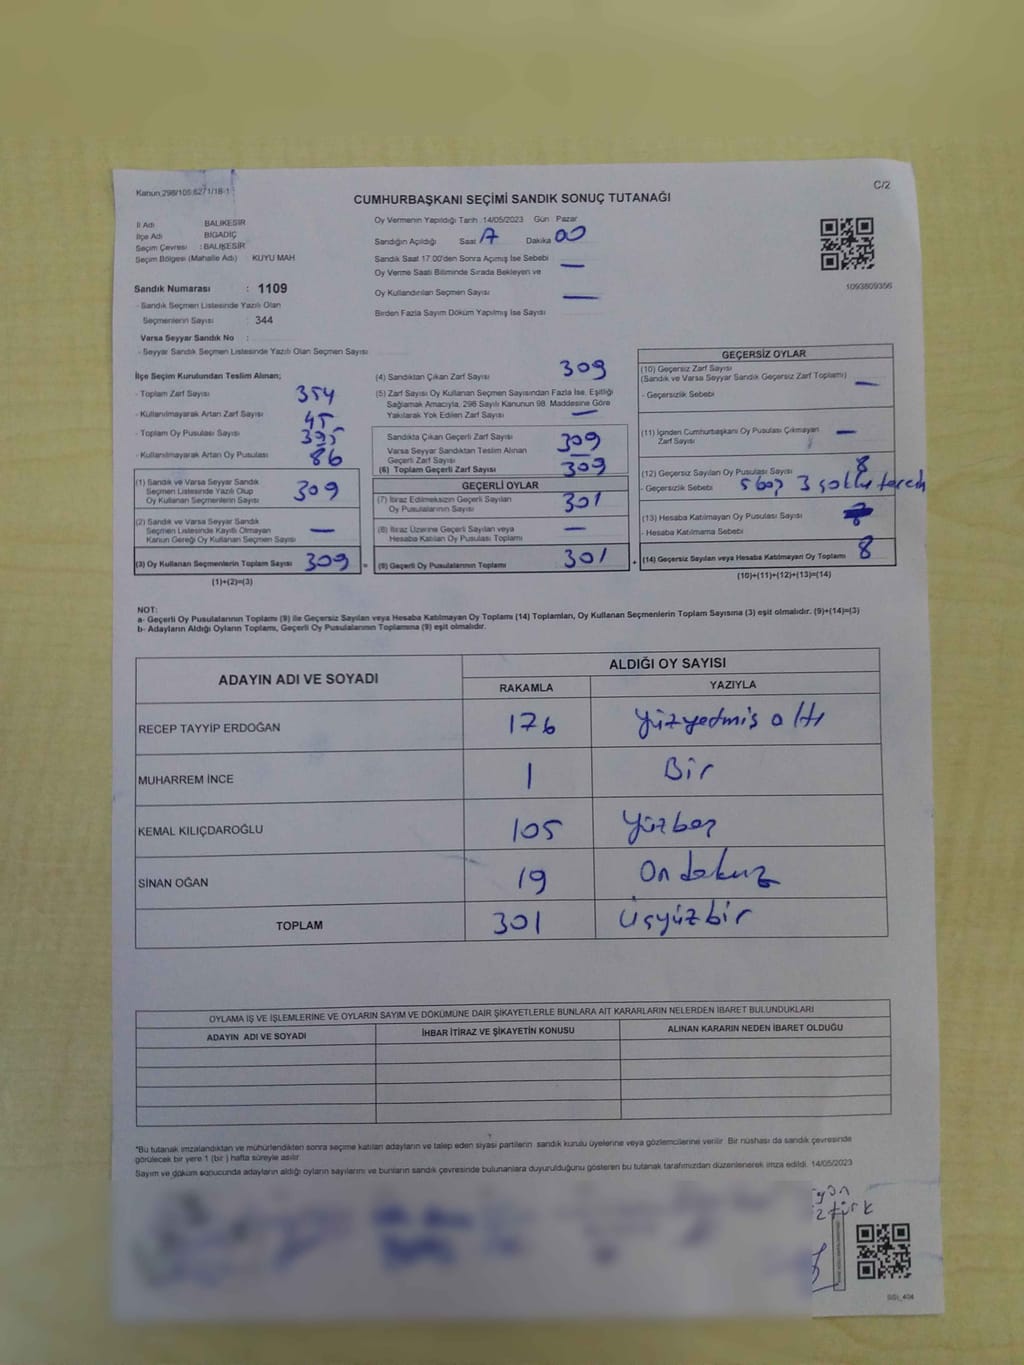 Kanun:298/105;6271/18-1
C/2
CUMHURBAŞKANI SEÇİMİ SANDIK SONUÇ TUTANAĞI
İl Adı BALIKESİR
İlçe Adı BİGADİÇ
Seçim Çevresi : BALIKESİR
Seçim Bölgesi (Mahalle Adı) KUYU MAH
Oy Vermenin Yapıldığı Tarih 14/05/2023 Gün Pazar
Sandığın Açıldığı Saat 17 Dakika 00
Sandık Saat 17.00'den Sonra Açımış İse Sebebi —
Oy Verme Saati Bitiminde Sırada Bekleyen ve
Oy Kullandırılan Seçmen Sayısı —
Birden Fazla Sayım Döküm Yapılmış İse Sayısı
1093809356
Sandık Numarası : 1109
- Sandık Seçmen Listesinde Yazılı Olan
Seçmenlerin Sayısı : 344
Varsa Seyyar Sandık No :
- Seyyar Sandık Seçmen Listesinde Yazılı Olan Seçmen Sayısı
İlçe Seçim Kurulundan Teslim Alınan;
- Toplam Zarf Sayısı 354
- Kullanılmayarak Artan Zarf Sayısı 45
- Toplam Oy Pusulası Sayısı 395
- Kullanılmayarak Artan Oy Pusulası 86
(1) Sandık ve Varsa Seyyar Sandık
Seçmen Listesinde Yazılı Olup
Oy Kullanan Seçmenlerin Sayısı 309
(2) Sandık ve Varsa Seyyar Sandık
Seçmen Listesinde Kayıtlı Olmayan
Kanun Gereği Oy Kullanan Seçmen Sayısı —
(3) Oy Kullanan Seçmenlerin Toplam Sayısı 309 =
(1)+(2)=(3)
(4) Sandıktan Çıkan Zarf Sayısı 309
(5) Zarf Sayısı Oy Kullanan Seçmen Sayısından Fazla İse, Eşitliği
Sağlamak Amacıyla, 298 Sayılı Kanunun 98. Maddesine Göre
Yakılarak Yok Edilen Zarf Sayısı —
Sandıkta Çıkan Geçerli Zarf Sayısı 309
Varsa Seyyar Sandıktan Teslim Alınan
Geçerli Zarf Sayısı —
(6) Toplam Geçerli Zarf Sayısı 309
GEÇERLİ OYLAR
(7) İtiraz Edilmeksizin Geçerli Sayılan
Oy Pusulalarının Sayısı 301
(8) İtiraz Üzerine Geçerli Sayılan veya
Hesaba Katılan Oy Pusulası Toplamı —
(9) Geçerli Oy Pusulalarının Toplamı 301 +
GEÇERSİZ OYLAR
(10) Geçersiz Zarf Sayısı
(Sandık ve Varsa Seyyar Sandık Geçersiz Zarf Toplamı) —
- Geçersizlik Sebebi
(11) İçinden Cumhurbaşkanı Oy Pusulası Çıkmayan
Zarf Sayısı —
(12) Geçersiz Sayılan Oy Pusulası Sayısı 8
- Geçersizlik Sebebi 5 boş 3
(13) Hesaba Katılmayan Oy Pusulası Sayısı
- Hesaba Katılmama Sebebi
(14) Geçersiz Sayılan veya Hesaba Katılmayan Oy Toplamı 8
(10)+(11)+(12)+(13)=(14)
NOT:
a- Geçerli Oy Pusulalarının Toplamı (9) ile Geçersiz Sayılan veya Hesaba Katılmayan Oy Toplamı (14) Toplamları, Oy Kullanan Seçmenlerin Toplam Sayısına (3) eşit olmalıdır. (9)+(14)=(3)
b- Adayların Aldığı Oyların Toplamı, Geçerli Oy Pusulalarının Toplamına (9) eşit olmalıdır.
ADAYIN ADI VE SOYADI
ALDIĞI OY SAYISI
RAKAMLA YAZIYLA
RECEP TAYYİP ERDOĞAN 176 Yüzyetmiş altı
MUHARREM İNCE 1 Bir
KEMAL KILIÇDAROĞLU 105 Yüzbeş
SİNAN OĞAN 19 On dokuz
TOPLAM 301 Üçyüzbir
OYLAMA İŞ VE İŞLEMLERİNE VE OYLARIN SAYIM VE DÖKÜMÜNE DAİR ŞİKAYETLERLE BUNLARA AİT KARARLARIN NELERDEN İBARET BULUNDUKLARI
ADAYIN ADI VE SOYADI İHBAR İTİRAZ VE ŞİKAYETİN KONUSU ALINAN KARARIN NEDEN İBARET OLDUĞU
*Bu tutanak imzalandıktan ve mühürlendikten sonra seçime katılan adayların ve talep eden siyasi partilerin sandık kurulu üyelerine veya gözlemcilerine verilir. Bir nüshası da sandık çevresinde
görülecek bir yere 1 (bir) hafta süreyle asılır.
Sayım ve döküm sonucunda adayların aldığı oyların sayılarını ve bunların sandık çevresinde bulunanlara duyurulduğunu gösteren bu tutanak tarafımızdan düzenlenerek imza edildi. 14/05/2023